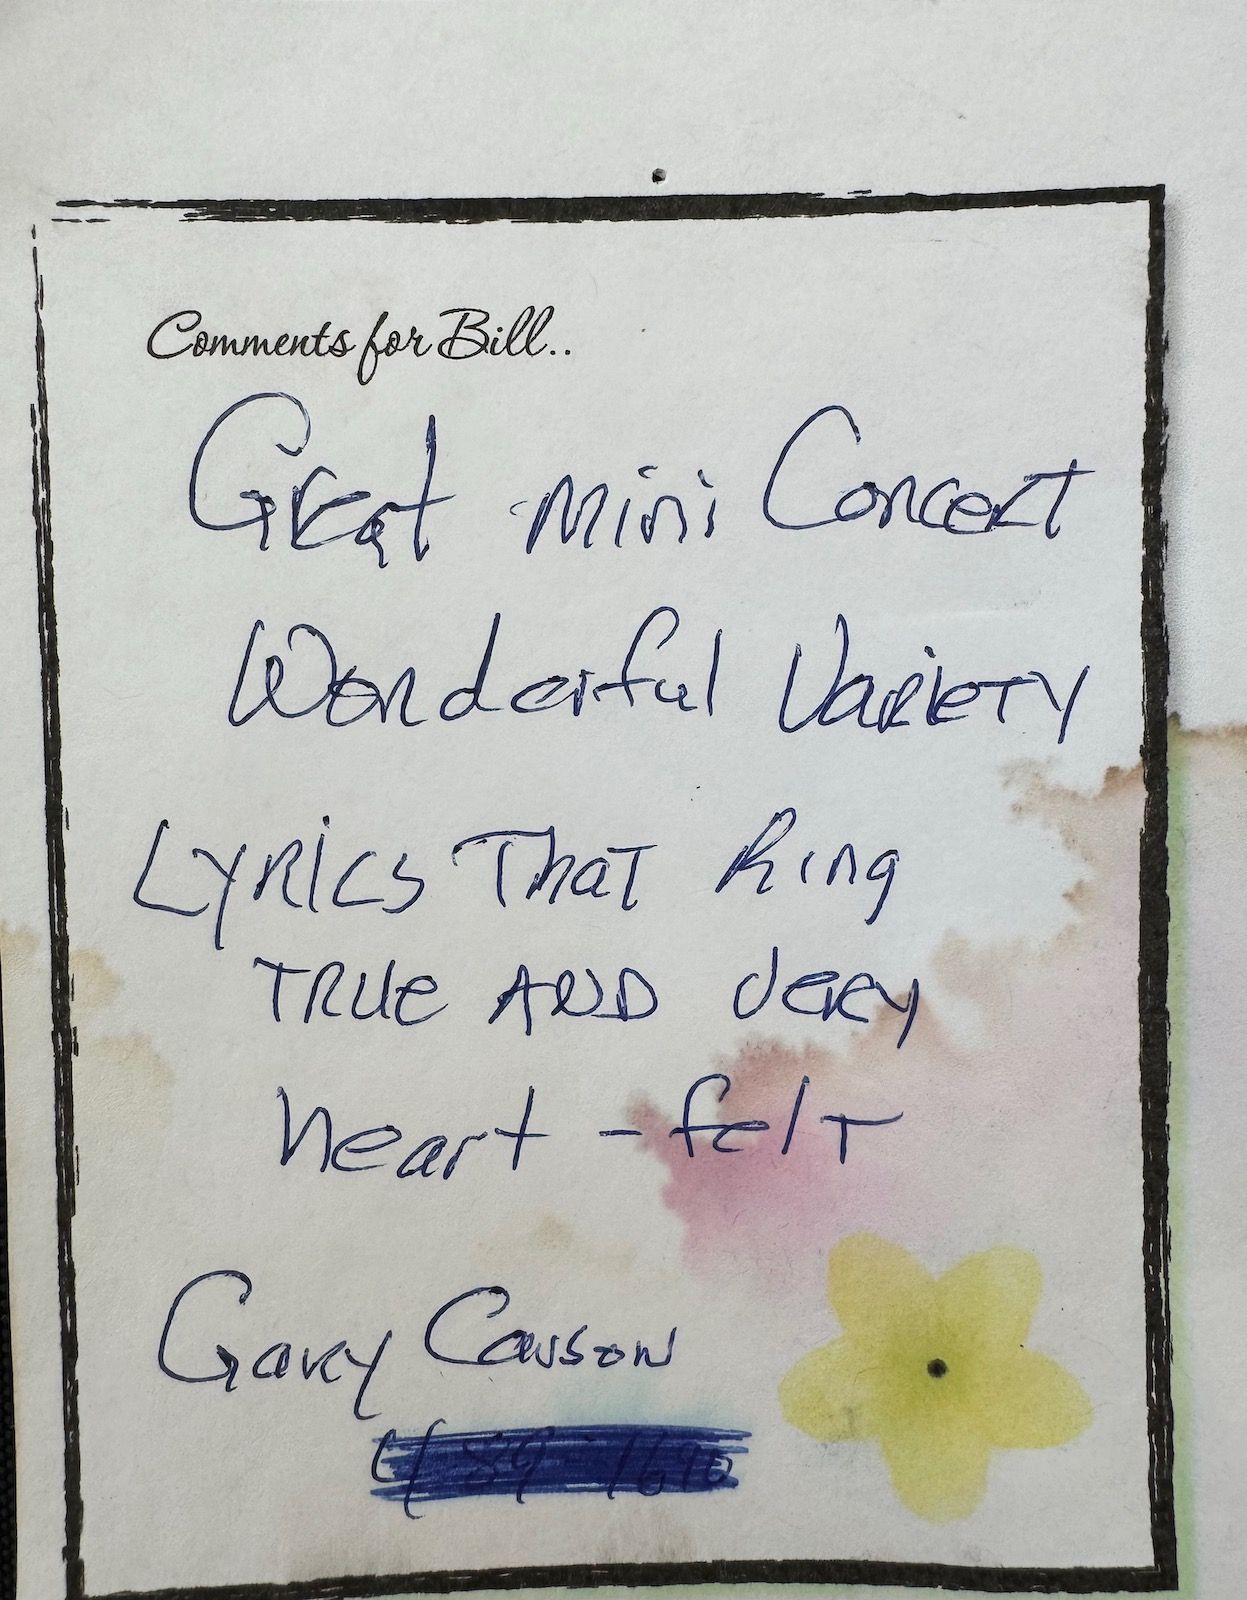 Comments for Bill..
Great mini Concert
Wonderful Variety
Lyrics That Ring
TRUE AND very
heart - felt
Gary Carson